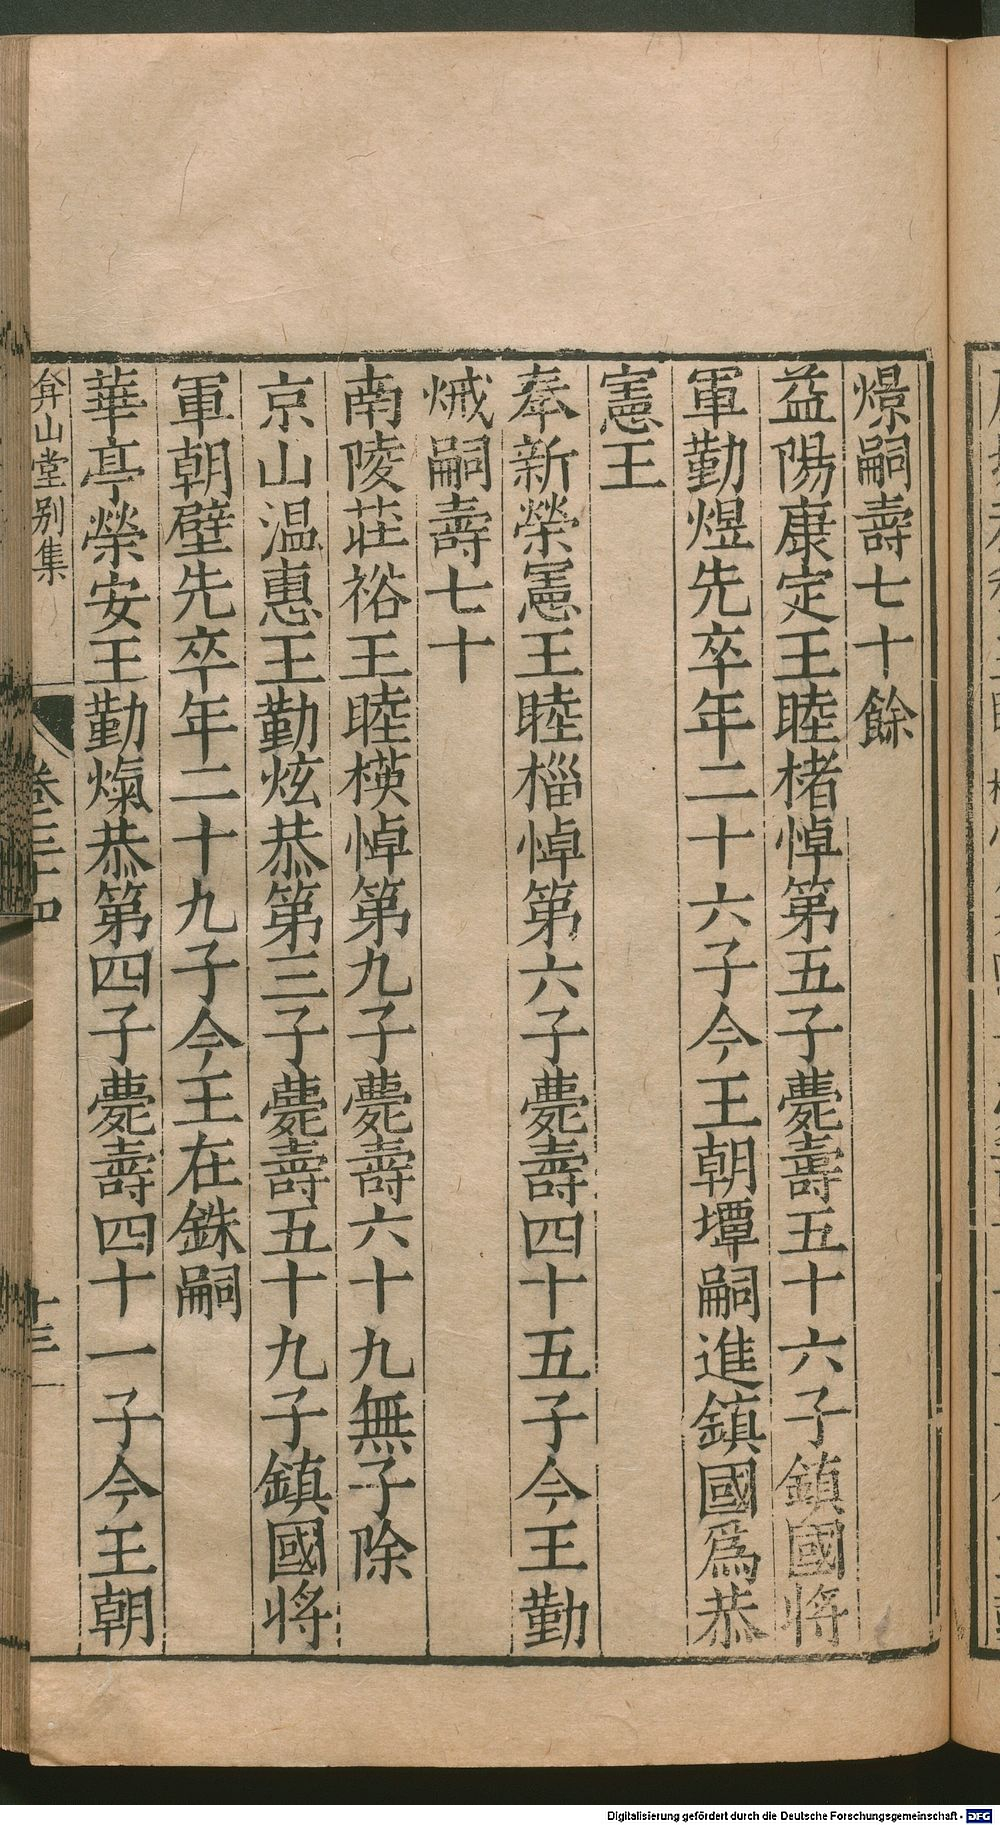 燝嗣壽七十餘
益陽康定王睦楮悼第五子薨壽五十六子鎮國將
軍勤煜先卒年二十六子今王朝墰嗣進鎮國爲恭
憲王
奉新榮憲王睦㮯悼第六子薨壽四十五子今王勤
烕嗣壽七十
南陵莊裕王睦楧悼第九子薨壽六十九無子除
京山温惠王勤炫恭第三子薨壽五十九子鎮國將
軍朝壁先卒年二十九子今王在銖嗣
華亭榮安王勤㷌恭第四子薨壽四十一子今王朝
弇山堂別集
卷三十四
十三
Digitalisierung gefördert durch die Deutsche Forschungsgemeinschaft - DFG